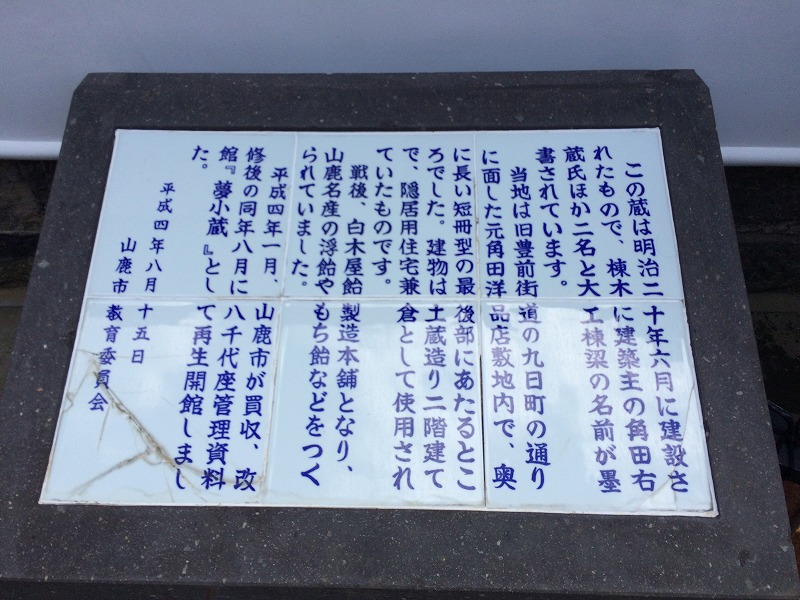 この蔵は明治二十年六月に建設さ
れたもので、棟木に建築主の角田右
蔵氏ほか二名と大工棟梁の名前が墨
書されています。
当地は旧豊前街道の九日町の通り
に面した元角田洋品店敷地内で、奥
に長い短冊型の最後部にあたるとこ
ろでした。建物は土蔵造り二階建て
で、隠居用住宅兼倉として使用され
ていたものです。
戦後、白木屋飴製造本舗となり、
山鹿名産の浮飴やもち飴などをつく
られていました。
平成四年一月、山鹿市が買収、改
修後の同年八月に八千代座管理資料
館『夢小蔵』として再生開館しまし
た。
平成四年八月十五日
山鹿市教育委員会